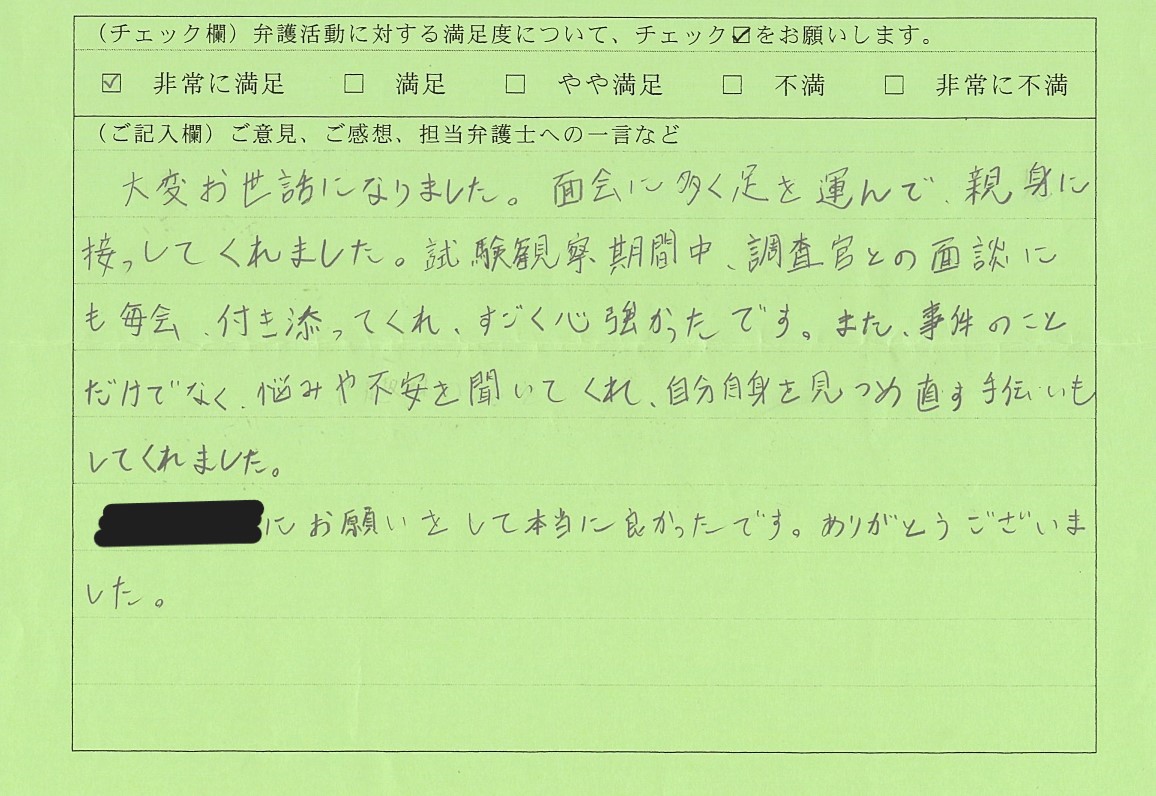 （チェック欄）弁護活動に対する満足度について、チェック☑をお願いします。
☑ 非常に満足 □ 満足 □ やや満足 □ 不満 □ 非常に不満
（ご記入欄）ご意見、ご感想、担当弁護士への一言など
大変お世話になりました。面会に多く足を運んで、親身に
接っしてくれました。試験観察期間中、調査官との面談に
も毎会、付き添ってくれ、すごく心強かったです。また、事件のこと
だけでなく、悩みや不安を聞いてくれ、自分自身を見つめ直す手伝いも
してくれました。
にお願いをして本当に良かったです。ありがとうございま
した。